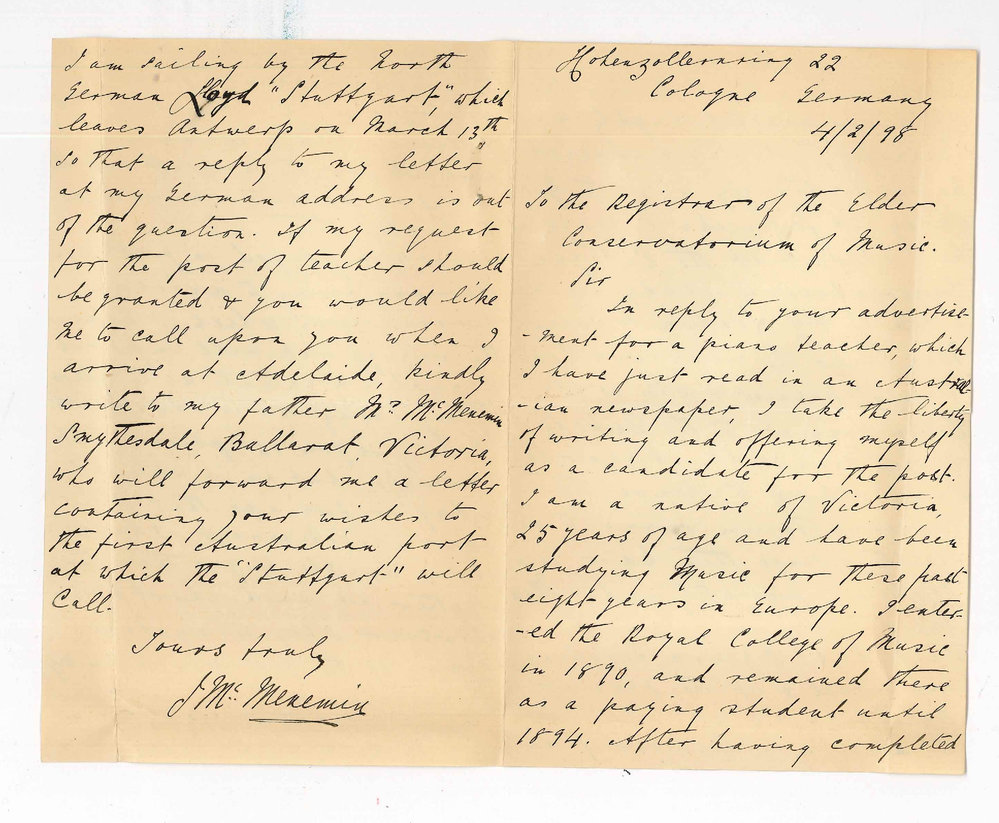 Hohenzollernring 22
Cologne Germany
4/2/98
To the Registrar of the Elder
Conservatorium of Music.
Sir
In reply to your advertise-
-ment for a piano teacher, which
I have just read in an Austral-
-ian newspaper, I take the liberty
of writing and offering myself
as a candidate for the post.
I am a native of Victoria,
25 years of age and have been
studying Music for these past
eight years in Europe. I enter-
-ed the Royal College of Music
in 1890, and remained there
as a paying student until
1894. After having completed
I am sailing by the North
German Lloyd "Stuttgart", which
leaves Antwerp on March 13th
so that a reply to my letter
at my German address is out
of the question. If my request
for the post of teacher should
be granted & you would like
me to call upon you when I
arrive at Adelaide, kindly
write to my father Mr McMenemin
Smythesdale, Ballarat, Victoria,
who will forward me a letter
containing your wishes to
the first Australian port
at which the "Stuttgart" will
call.
Yours truly
J McMenemin